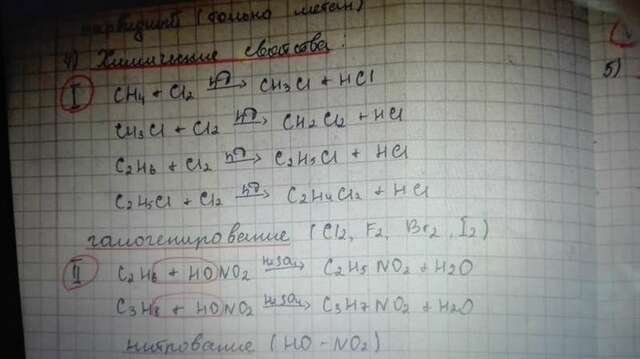 карбидный (только метан)
4) Химические свойства:
I CH4 + Cl2 hν→ CH3Cl + HCl
CH3Cl + Cl2 hν→ CH2Cl2 + HCl
C2H6 + Cl2 hν→ C2H5Cl + HCl
C2H5Cl + Cl2 hν→ C2H4Cl2 + HCl
галогенирование (Cl2, F2, Br2, I2)
II C2H6 + HONO2 H2SO4→ C2H5NO2 + H2O
C3H8 + HONO2 H2SO4→ C3H7NO2 + H2O
нитрование (HO - NO2)
5)